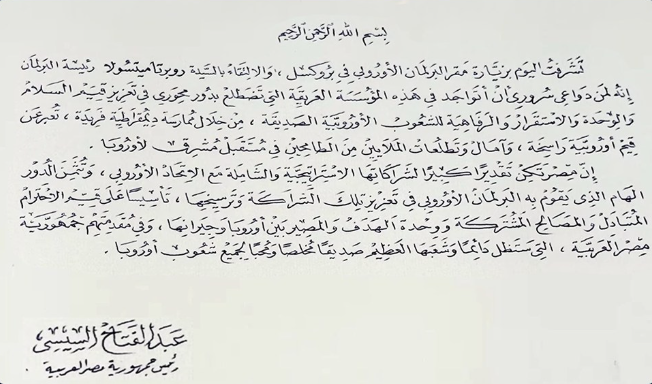 بِسْمِ اللهِ الرَّحْمنِ الرَّحِيمِ
تشرفت اليوم بزيارة مقر البرلمان الأوروبي في بروكسل ، والالتقاء بالسيدة روبرتا ميتسولا رئيسة البرلمان
إنه لمن دواعي سروري أن أتواجد في هذه المؤسسة العريقة التي تضطلع بدور محوري في تعزيز قيم السلام
والوحدة والاستقرار والرفاهية للشعوب الأوروبية الصديقة ، من خلال ممارسة ديمقراطية فريدة ، تعبر عن
قيم أوروبية راسخة ، وآمال وتطلعات الملايين من الطامحين في مستقبل مشرق لأوروبا .
إن مصر تكن تقديرًا كبيرًا لشراكاتها الاستراتيجية والشاملة مع الاتحاد الأوروبي ، وتثمن الدور
الهام الذي يقوم به البرلمان الأوروبي في تعزيز تلك الشراكة وترسيخها ، تأسيسًا على قيم الاحترام
المتبادل والمصالح المشتركة ووحدة الهدف والمصير بين أوروبا وجيرانها ، وفي مقدمتهم جمهورية
مصر العربية ، التي ستظل دائمًا وشعبها العظيم صديقًا مخلصًا ومحبًا لجميع شعوب أوروبا .
عبد الفتاح السيسي
رئيس جمهورية مصر العربية